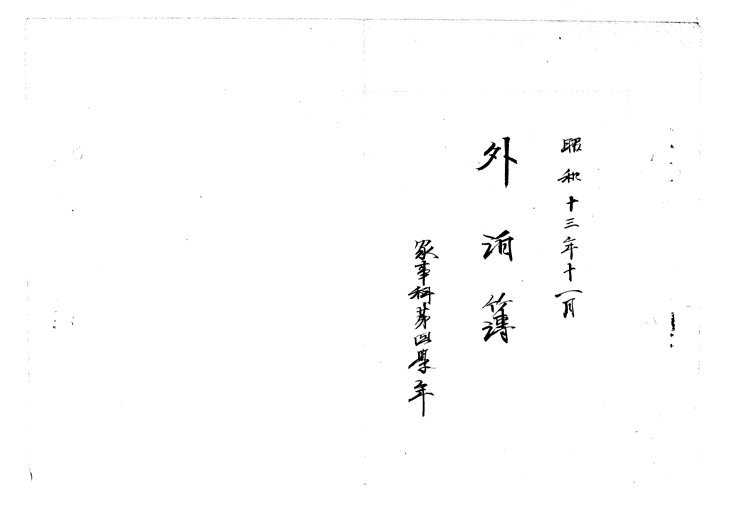 昭和十三年十一月
外泊簿
家事科第四學年